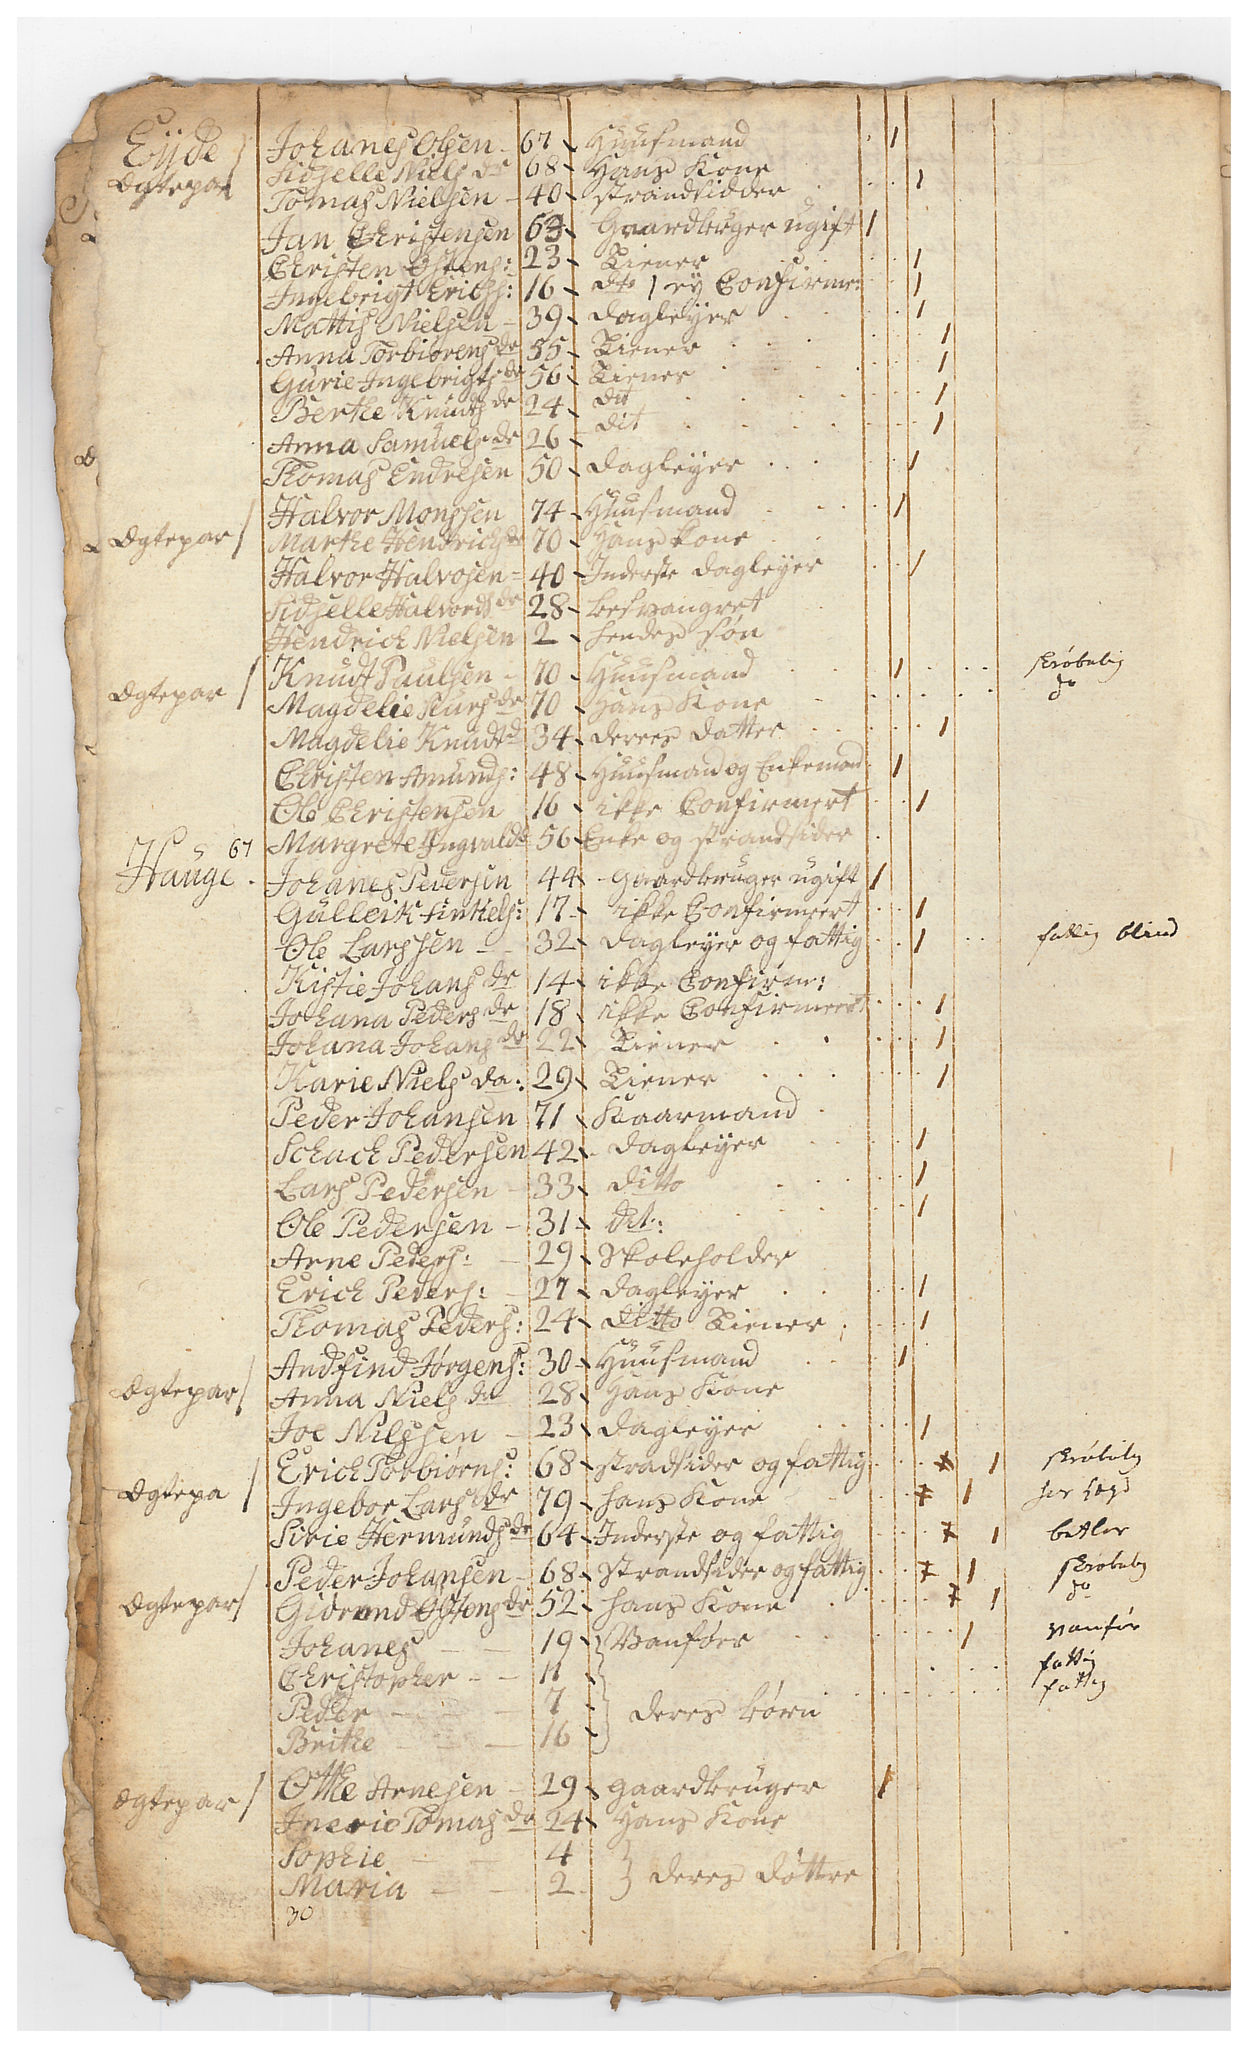 Eijde / Johanes Olsen - 67 - Huusmand
Ægtepar Sidselle Niels dr 68 - Hans Kone
Tomas Nielsen - 40 - Strandsidder
Jan Christensen 63 - Gaardbruger ugift
Christen Ostens: 23 - Tiener
Ingebrigt Erichs: 16 - dto / ej Confirme:
Mattis Nielsen - 39 - dagleyer
Anna Torbiørens dr 55 - Tiener
Gurie Ingebrigts dr 56 - Tiener
Berthe Knuds dr 24 - dit
Anna Samuels dr 26 - dit
Thomas Endresen 50 - dagleyer
Halvor Monssen 74 - Huusmand
Ægtepar / Marthe Hendrichs dr 70 - Hans kone
Halvor Halvosen - 40 - Inderste dagleyer
Sidselle Halvords dr 28 - besvangret
Hendrich Nielsen 2 - hendes søn
Knudt Paulsen - 70 - Huusmand skrøbelig
Ægtepar / Magdelie dr 70 - Hans Kone do
Magdelie Knudt d 34 - deres datter
Christen Amunds: 48 - Huusmand og Enkemand
Ole Christensen 16 - ikke Confirmert
67 Margrete Ingvalds 56 - Enke og strandsider
Hauge. Johanes Pedersen 44 - Gaardbruger ugift
Gulleik : 17 - ikke Confirmeert
Ole Larssen - - 32 - dagleyer og fattig fattig blind
Kistie Johans dr 14 - ikke Confirm:
Johana Peders dr 18 - ikke Confirmeert
Johana Johans dr 22 - Tiener
Karie Niels da: 29 - Tiener
Peder Johansen 71 - Kaarmand
Schack Pedersen 42 - dagleyer
Lars Pedersen - 33 - ditto
Ole Pedersen - 31 - dit:
Arne Peders: - 29 - Skoleholder
Erich Peders: - 27 - dagleyer
Thomas Peders: 24 - ditto Tiener
Andfind Jørgens: 30 - Huusmand
Ægtepar / Anna Niels da 28 - Hans Kone
Joe Nilssen - 23 - dagleyer
Erich Torbiørns: 68 - stradsider og fattig skrøbelig
Ægtepa / Ingebor Lars dr 79 - hans Kone
Sirie Hermunds dr 64 - Inderste og fattig betler
Peder Johansen - 68 - Strandsider og fattig skrøbelig
Ægtepar / Østens dr 52 - hans Kone do
Johanes - - 19 } Vanføer vanfør
Christopher - - 11 - fattig
Peder - - - 7 - } deres børn fattig
Brithe - - 16 -
Otthe Arnesen - 29 - gaardbruger
Ægtepar / Tomas da 24 - Hans Kone
Sophie - - 4 } deres døttre
Maria - - 2
30